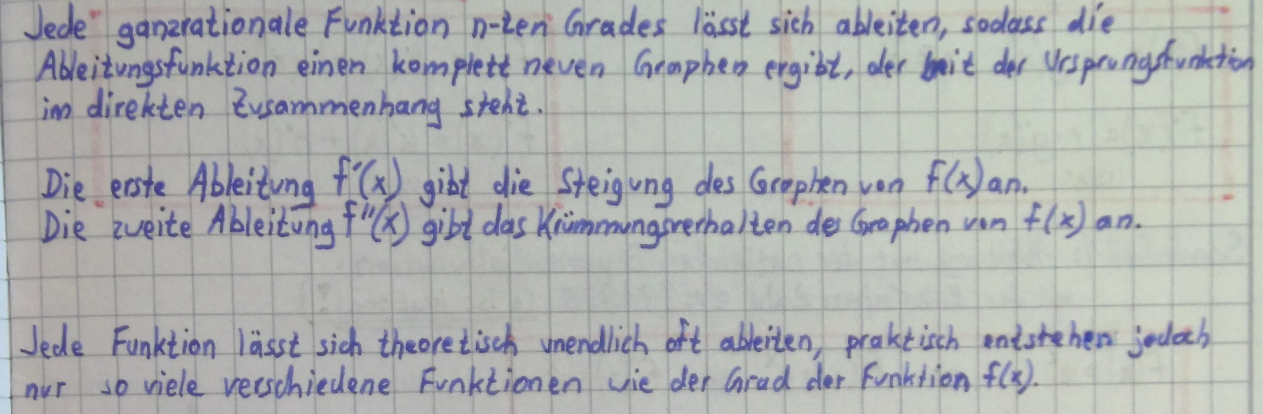 Jede ganzrationale Funktion n-ten Grades lässt sich ableiten, sodass die
Ableitungsfunktion einen komplett neuen Graphen ergibt, der mit der Ursprungsfunktion
im direkten Zusammenhang steht.
Die erste Ableitung f'(x) gibt die Steigung des Graphen von f(x) an.
Die zweite Ableitung f''(x) gibt das Krümmungsverhalten des Graphen von f(x) an.
Jede Funktion lässt sich theoretisch unendlich oft ableiten, praktisch entstehen jedoch
nur so viele verschiedene Funktionen wie der Grad der Funktion f(x).